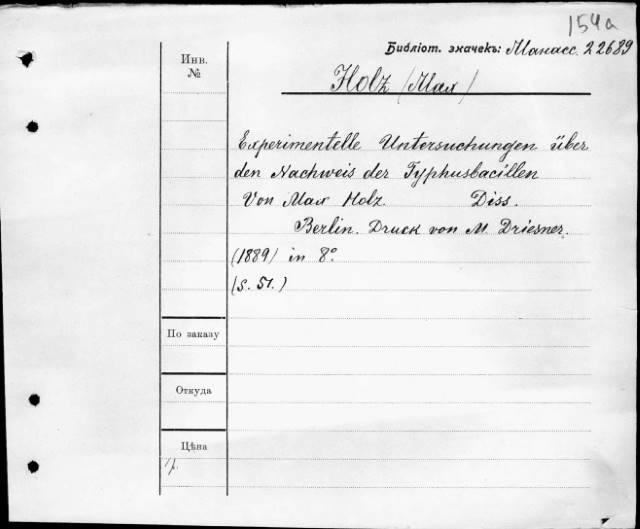 154a
Библіот. значекъ: Манасс. 22689
Инв.
№
Holz (Max)
Experimentelle Untersuchungen über
den Nachweis der Typhusbacillen
Von Max Holz. Diss.
Berlin. Druck von M. Driesner.
(1889) in 8°
(S. 51.)
По заказу
Откуда
Цѣна